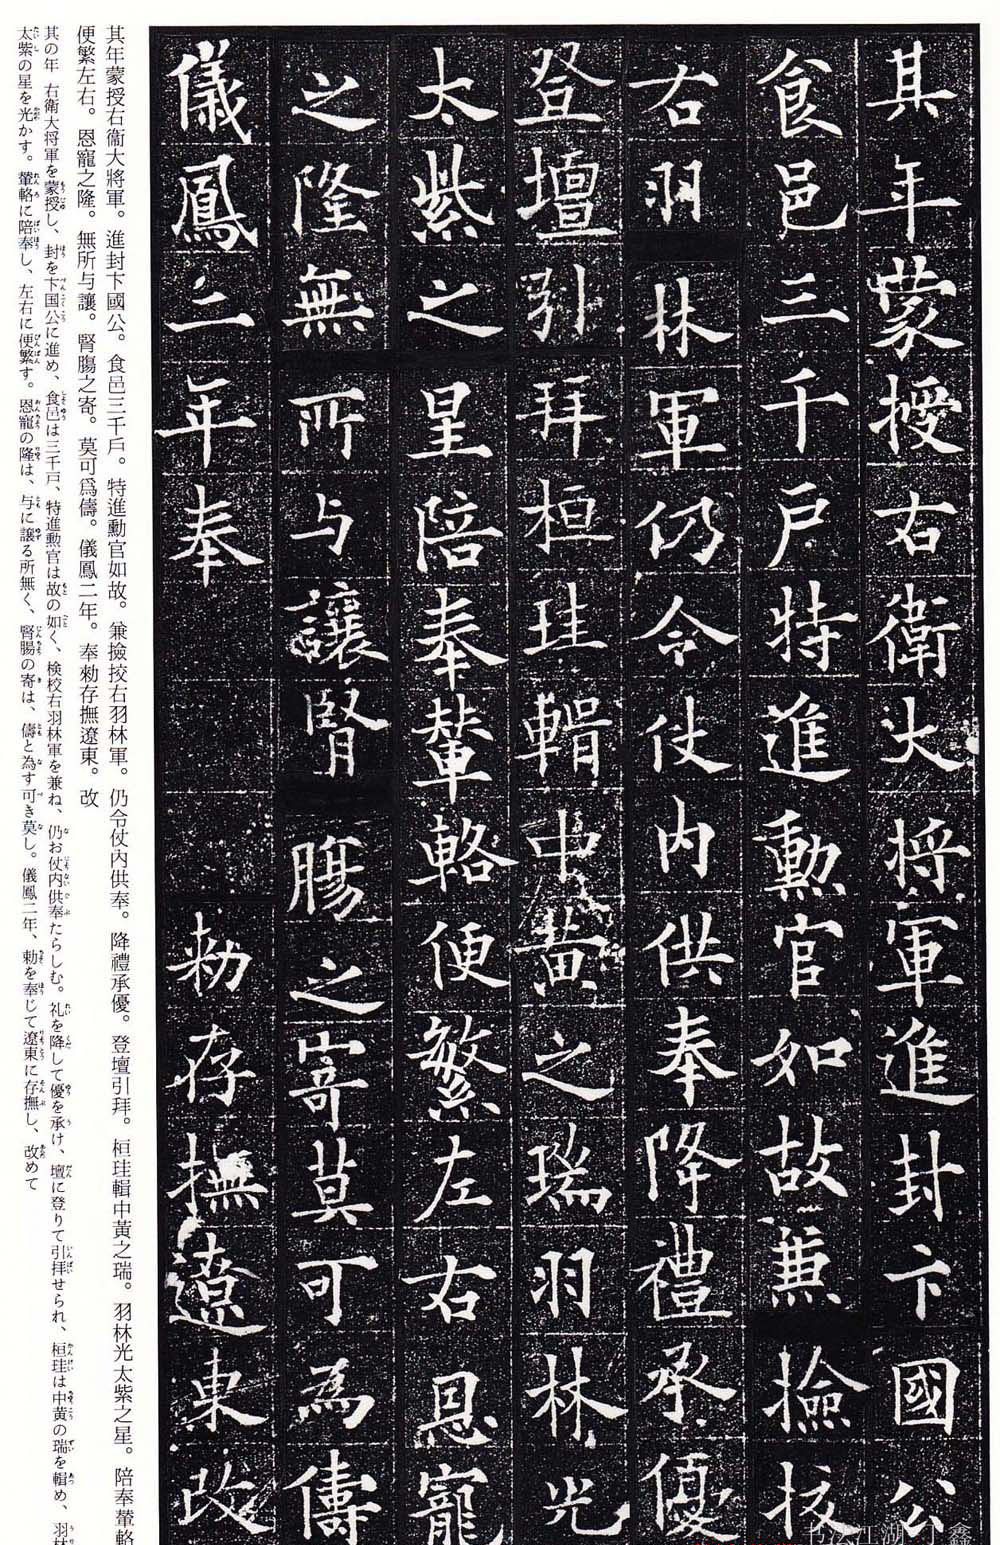 其年蒙授右衛大将軍進封卞國公
食邑三千戶特進勳官如故兼撿挍
右羽林軍仍令仗内供奉降禮承優
登壇引拜桓珪輯中黃之瑞羽林光
太紫之星陪奉輦輅便繁左右恩寵
之隆無所与讓腎膓之寄莫可為儔
儀鳳二年奉勑存撫遼東改
其年蒙授右衞大將軍。進封卞國公。食邑三千戶。特進勳官如故。兼撿挍右羽林軍。仍令仗内供奉。降禮承優。登壇引拜。桓珪輯中黃之瑞。羽林光太紫之星。陪奉輦輅
便繁左右。恩寵之隆。無所与讓。腎膓之寄。莫可爲儔。儀鳳二年。奉勑存撫遼東。改
其の年　右衛大将軍を蒙授し、封を卞国公に進め、食邑は三千戸、特進勲官は故の如く、検校右羽林軍を兼ね、仍お仗内供奉たらしむ。礼を降して優を承け、壇に登りて引拝せられ、桓珪は中黄の瑞を輯め、羽林
太紫の星を光かす。輦輅に陪奉し、左右に便繁す。恩寵の隆は、与に譲る所無く、腎腸の寄は、儔と為す可き莫し。儀鳳二年、勅を奉じて遼東に存撫し、改めて
书法江湖 丁鑫